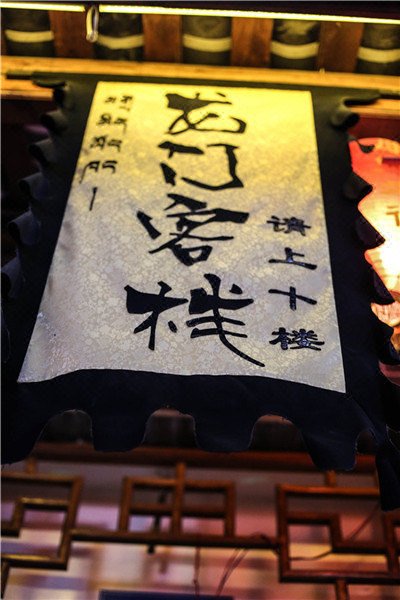 龙门客栈
请上十楼